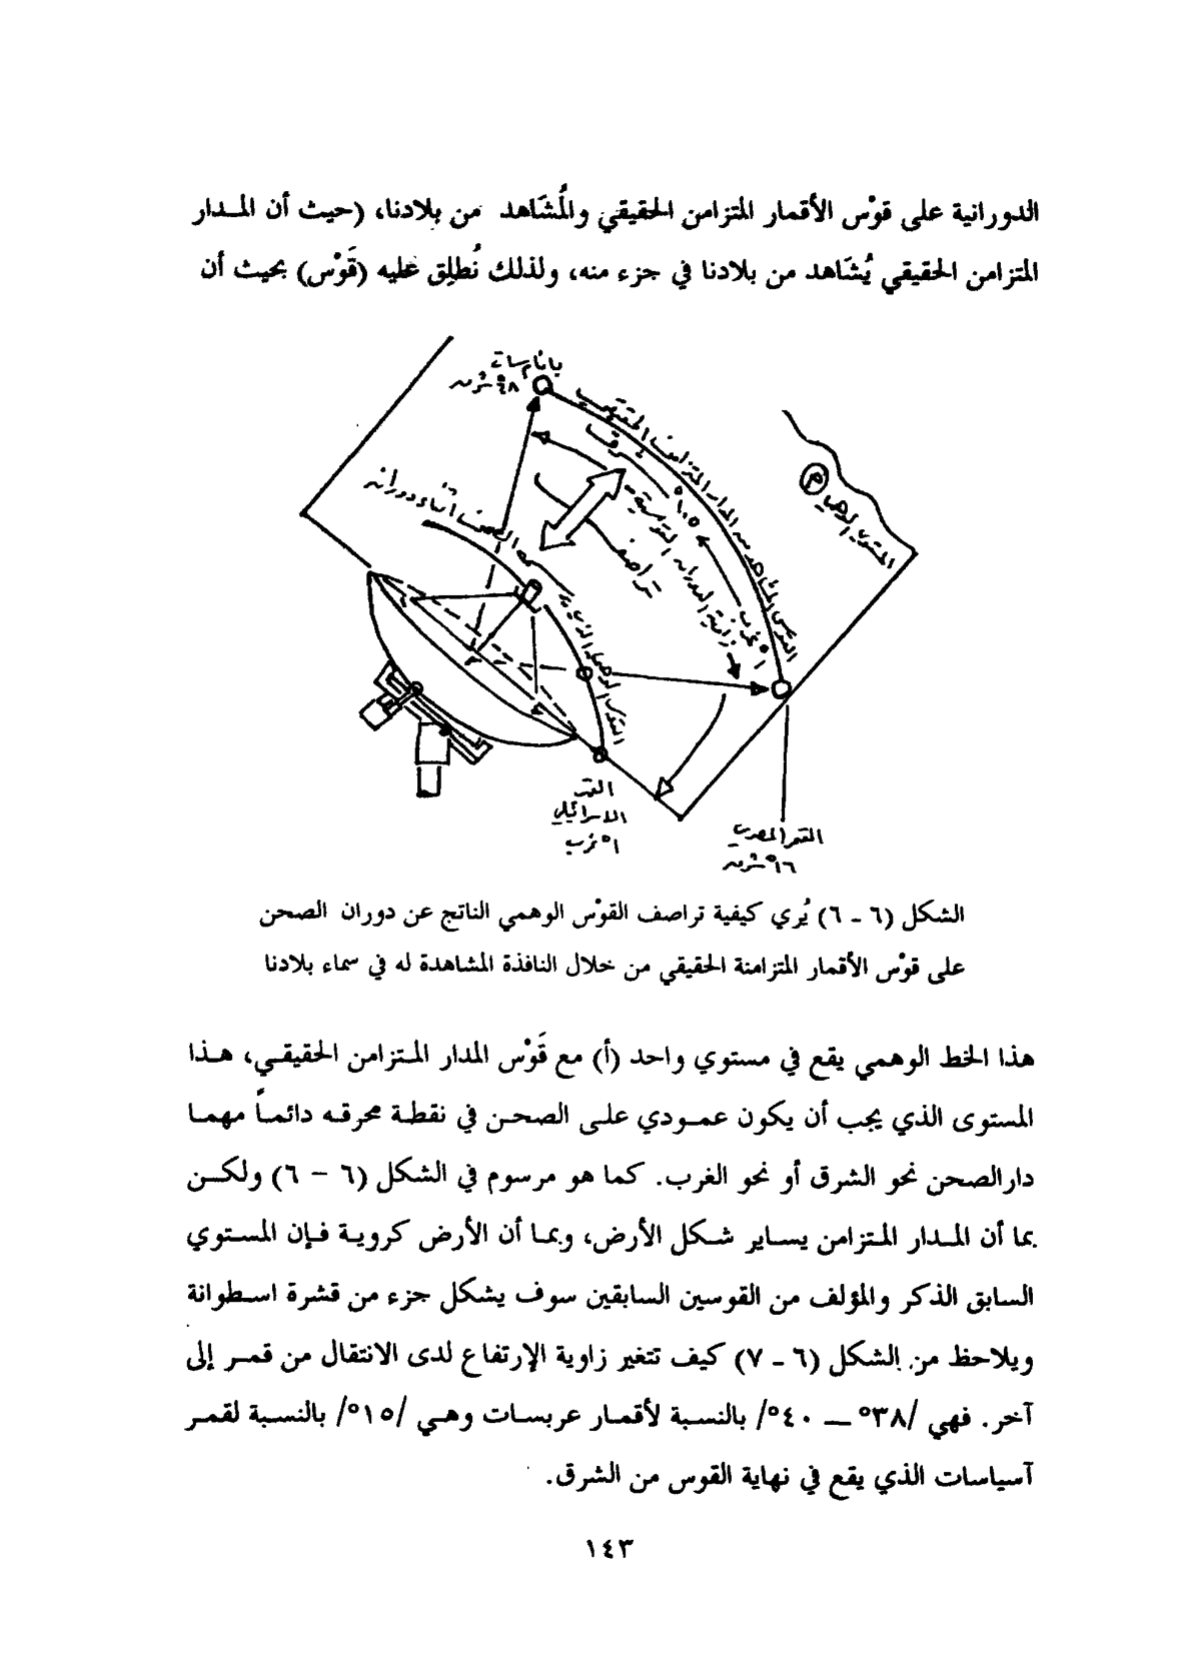 الدورانية على قوْس الأقمار المتزامن الحقيقي والمُشَاهد من بلادنا، (حيث أن المـدار
المتزامن الحقيقي يُشَاهد من بلادنا في جزء منه، ولذلك نُطلِق عليه (قَوْس) بحيث أن
شرق
تراصف
القمر
الاسرائيلي
١° غرب
القمر المصري
الشكل (٦ - ٦) يُري كيفية تراصف القوْس الوهمي الناتج عن دوران الصحن
على قوْس الأقمار المتزامنة الحقيقي من خلال النافذة المشاهدة له في سماء بلادنا
هذا الخط الوهمي يقع في مستوي واحد (أ) مع قَوْس المدار المـتزامن الحقيقـي، هـذا
المستوى الذي يجب أن يكون عمـودي علـى الصحـن في نقطـة محرقـه دائمـاً مهمـا
دارالصحن نحو الشرق أو نحو الغرب. كما هو مرسوم في الشكل (٦ – ٦) ولكـن
بما أن المـدار المـتزامن يسـاير شـكل الأرض، وبمـا أن الأرض كرويـة فـإن المسـتوي
السابق الذكر والمؤلف من القوسين السابقين سوف يشكل جزء من قشرة اسـطوانة
ويلاحظ من الشكل (٦ - ٧) كيف تتغير زاوية الإرتفاع لدى الانتقال من قمـر إلى
آخر. فهي /٣٨° — ٤٠°/ بالنسبة لأقمـار عربسـات وهـي /١٥°/ بالنسبة لقمـر
آسياسات الذي يقع في نهاية القوس من الشرق.
١٤٣